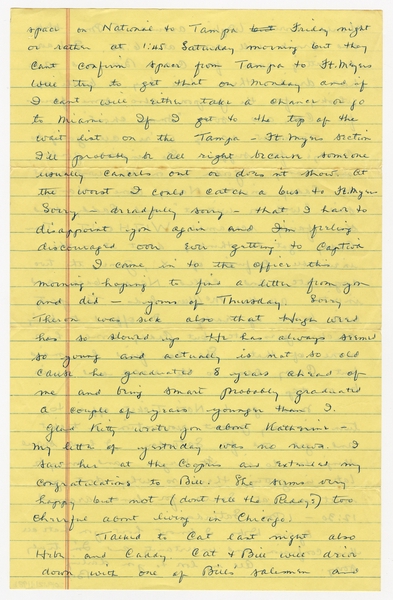 space on National to Tampa Friday night
or rather at 1:45 Saturday morning but they
cant confirm space from Tampa to Ft. Myers
Will try to get that on Monday and if
I cant will either take a chance or go
to Miami. If I get to the top of the
wait list on the Tampa - Ft. Myers section
I'll probably be all right because someone
usually cancels out or doesnt show. At
the worst I could catch a bus to Ft. Myers
Sorry - dreadfully sorry - that I have to
disappoint you again and I'm feeling
discouraged over ever getting to Captiva
I came in to the office this
morning hoping to find a letter from you
and did - yours of Thursday. Sorry
Theron was sick also that Hugh
has so slowed up He has always seemed
so young and actually is not so old
cause he graduated 8 years ahead of
me and being smart probably graduated
a couple of years younger than I.
Glad Kitty wrote you about Katherine -
My letter of yesterday was no news. I
saw her at the Coopers and extended my
congratulations to Bill. She seems very
happy but not (dont tell the) too
cheerful about living in Chicago.
Talked to Cat last night also
Hibs and Caddy. Cat & Bill will drive
down with one of Bills salesmen and